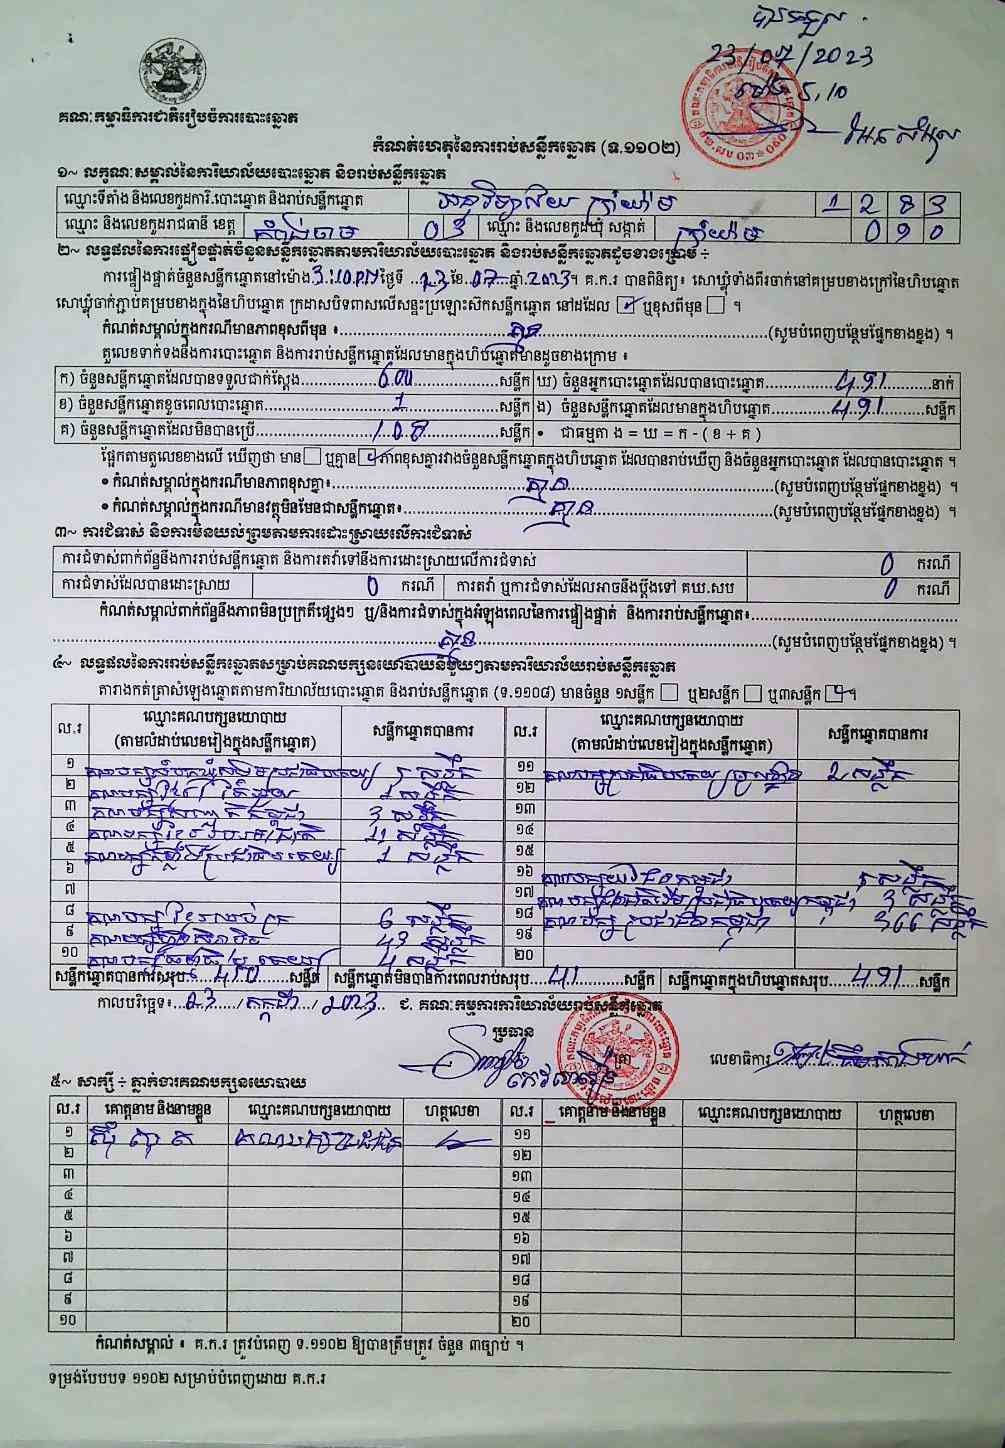 បានទទួល
23/07/2023
ម៉ោង 5,10
គណៈកម្មាធិការជាតិរៀបចំការបោះឆ្នោត
កំណត់ហេតុនៃការរាប់សន្លឹកឆ្នោត (ទ.១១០២)
១~ លក្ខណៈសម្គាល់នៃការិយាល័យបោះឆ្នោត និងរាប់សន្លឹកឆ្នោត
ឈ្មោះទីតាំង និងលេខកូដការិ.បោះឆ្នោត និងរាប់សន្លឹកឆ្នោត អនុវិទ្យាល័យ ព្រៃយ៉ាម 1 2 8 3
ឈ្មោះ និងលេខកូដរាជធានី ខេត្ត កំពង់ចាម 0 3 ឈ្មោះ និងលេខកូដឃុំ សង្កាត់ 0 9 0
២~ លទ្ធផលនៃការផ្ទៀងផ្ទាត់ចំនួនសន្លឹកឆ្នោតតាមការិយាល័យបោះឆ្នោត និងរាប់សន្លឹកឆ្នោតដូចខាងក្រោម ÷
ការផ្ទៀងផ្ទាត់ចំនួនសន្លឹកឆ្នោតនៅម៉ោង 3:10 PM ថ្ងៃទី 23 ខែ 07 ឆ្នាំ 2023 ។ គ.ក.រ បានពិនិត្យ៖ សោឃ្លុំទាំងពីរចាក់នៅគម្របខាងក្រៅនៃហិបឆ្នោត
សោឃ្លុំចាក់ភ្ជាប់គម្របខាងក្នុងនៃហិបឆ្នោត ក្រដាសបិទពាសលើសន្ទះប្រឡោះស៊កសន្លឹកឆ្នោត នៅដដែល ឬខុសពីមុន ។
កំណត់សម្គាល់ក្នុងករណីមានភាពខុសពីមុន ៖ គ្មាន (សូមបំពេញបន្ថែមផ្នែកខាងខ្នង) ។
តួលេខទាក់ទងនឹងការបោះឆ្នោត និងការរាប់សន្លឹកឆ្នោតដែលមានក្នុងហិបឆ្នោតមានដូចខាងក្រោម ៖
ក) ចំនួនសន្លឹកឆ្នោតដែលបានទទួលជាក់ស្តែង 600 សន្លឹក ឃ) ចំនួនអ្នកបោះឆ្នោតដែលបានបោះឆ្នោត 491 នាក់
ខ) ចំនួនសន្លឹកឆ្នោតខូចពេលបោះឆ្នោត 1 សន្លឹក ង) ចំនួនសន្លឹកឆ្នោតដែលមានក្នុងហិបឆ្នោត 491 សន្លឹក
គ) ចំនួនសន្លឹកឆ្នោតដែលមិនបានប្រើ 108 សន្លឹក • ជាធម្មតា ង = ឃ = ក - ( ខ + គ )
ផ្អែកតាមតួលេខខាងលើ ឃើញថា មាន ឬគ្មាន ភាពខុសគ្នារវាងចំនួនសន្លឹកឆ្នោតក្នុងហិបឆ្នោត ដែលបានរាប់ឃើញ និងចំនួនអ្នកបោះឆ្នោត ដែលបានបោះឆ្នោត ។
• កំណត់សម្គាល់ក្នុងករណីមានភាពខុសគ្នា៖ គ្មាន (សូមបំពេញបន្ថែមផ្នែកខាងខ្នង) ។
• កំណត់សម្គាល់ក្នុងករណីមានវត្ថុមិនមែនជាសន្លឹកឆ្នោត៖ គ្មាន (សូមបំពេញបន្ថែមផ្នែកខាងខ្នង) ។
៣~ ការជំទាស់ និងការមិនយល់ព្រមតាមការដោះស្រាយលើការជំទាស់
ការជំទាស់ពាក់ព័ន្ធនឹងការរាប់សន្លឹកឆ្នោត និងការតវ៉ាទៅនឹងការដោះស្រាយលើការជំទាស់ 0 ករណី
ការជំទាស់ដែលបានដោះស្រាយ 0 ករណី ការតវ៉ា ឬការជំទាស់ដែលអាចនឹងប្តឹងទៅ គឃ.សប 0 ករណី
កំណត់សម្គាល់ពាក់ព័ន្ធនឹងភាពមិនប្រក្រតីផ្សេងៗ ឬ/និងការជំទាស់ក្នុងអំឡុងពេលនៃការផ្ទៀងផ្ទាត់ និងការរាប់សន្លឹកឆ្នោត៖
គ្មាន (សូមបំពេញបន្ថែមផ្នែកខាងខ្នង) ។
៤~ លទ្ធផលនៃការរាប់សន្លឹកឆ្នោតសម្រាប់គណបក្សនយោបាយនីមួយៗតាមការិយាល័យរាប់សន្លឹកឆ្នោត
តារាងកត់ត្រាសំឡេងឆ្នោតតាមការិយាល័យបោះឆ្នោត និងរាប់សន្លឹកឆ្នោត (ទ.១១០៨) មានចំនួន ១សន្លឹក ឬ២សន្លឹក ឬ៣សន្លឹក ។
ល.រ ឈ្មោះគណបក្សនយោបាយ (តាមលំដាប់លេខរៀងក្នុងសន្លឹកឆ្នោត) សន្លឹកឆ្នោតបានការ ល.រ ឈ្មោះគណបក្សនយោបាយ (តាមលំដាប់លេខរៀងក្នុងសន្លឹកឆ្នោត) សន្លឹកឆ្នោតបានការ
១ គណបក្សសំបុកឃ្មុំសង្គមប្រជាធិបតេយ្យ សន្លឹក ១១ គណបក្សប្រជាធិបតេយ្យមូលដ្ឋាន 2 សន្លឹក
២ គណបក្ស សន្លឹក ១២
៣ គណបក្ស កម្ពុជា 3 សន្លឹក ១៣
៤ គណបក្សខ្មែរ ជាតិ 11 សន្លឹក ១៤
៥ គណបក្ស ប្រជាធិបតេយ្យ 1 សន្លឹក ១៥
៦ ១៦ គណបក្សយុវជនកម្ពុជា សន្លឹក
៧ ១៧ គណបក្ស ប្រជាធិបតេយ្យកម្ពុជា 3 សន្លឹក
៨ គណបក្សខ្មែរឈប់ក្រ 6 សន្លឹក ១៨ គណបក្សប្រជាជនកម្ពុជា 366 សន្លឹក
៩ គណបក្សហ្វ៊ុនស៊ិនប៉ិច 43 សន្លឹក ១៩
១០ គណបក្ស 4 សន្លឹក ២០
សន្លឹកឆ្នោតបានការសរុប 450 សន្លឹក សន្លឹកឆ្នោតមិនបានការពេលរាប់សរុប 41 សន្លឹក សន្លឹកឆ្នោតក្នុងហិបឆ្នោតសរុប 491 សន្លឹក
កាលបរិច្ឆេទ៖ 23 / កក្កដា / 2023 ជ. គណៈកម្មការការិយាល័យរាប់សន្លឹកឆ្នោត
ប្រធាន
លេខាធិការ
៥~ សាក្សី ÷ ភ្នាក់ងារគណបក្សនយោបាយ
ល.រ គោត្តនាម និងនាមខ្លួន ឈ្មោះគណបក្សនយោបាយ ហត្ថលេខា ល.រ គោត្តនាម និងនាមខ្លួន ឈ្មោះគណបក្សនយោបាយ ហត្ថលេខា
១ គណបក្សប្រជាជន ១១
២ ១២
៣ ១៣
៤ ១៤
៥ ១៥
៦ ១៦
៧ ១៧
៨ ១៨
៩ ១៩
១០ ២០
កំណត់សម្គាល់ ៖ គ.ក.រ ត្រូវបំពេញ ទ.១១០២ ឱ្យបានត្រឹមត្រូវ ចំនួន ៣ច្បាប់ ។
ទម្រង់បែបបទ ១១០២ សម្រាប់បំពេញដោយ គ.ក.រ